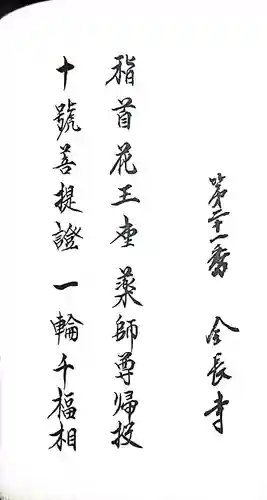 第二十一番 今長寺
稽首花王座 薬師尊歸投
十號菩提證 一輪千福相